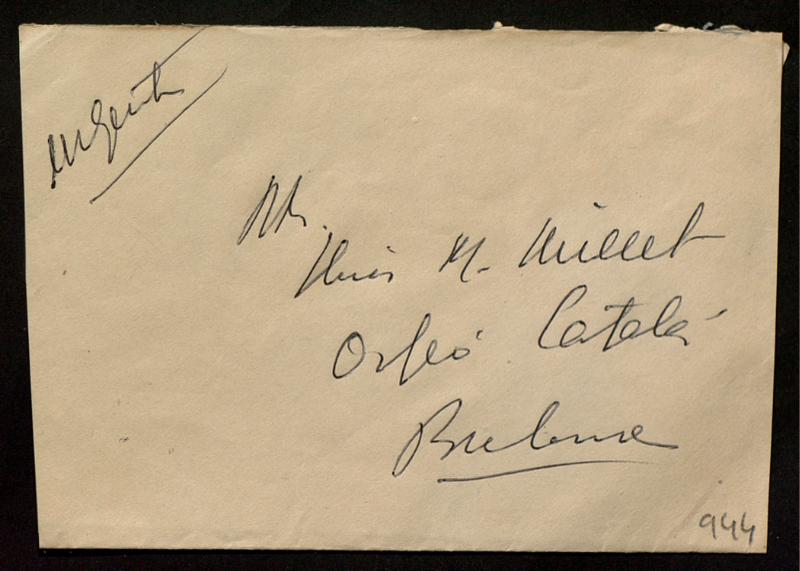 Urgent
Sr.
Lluis M. Millet
Orfeó Català
Barcelona
944